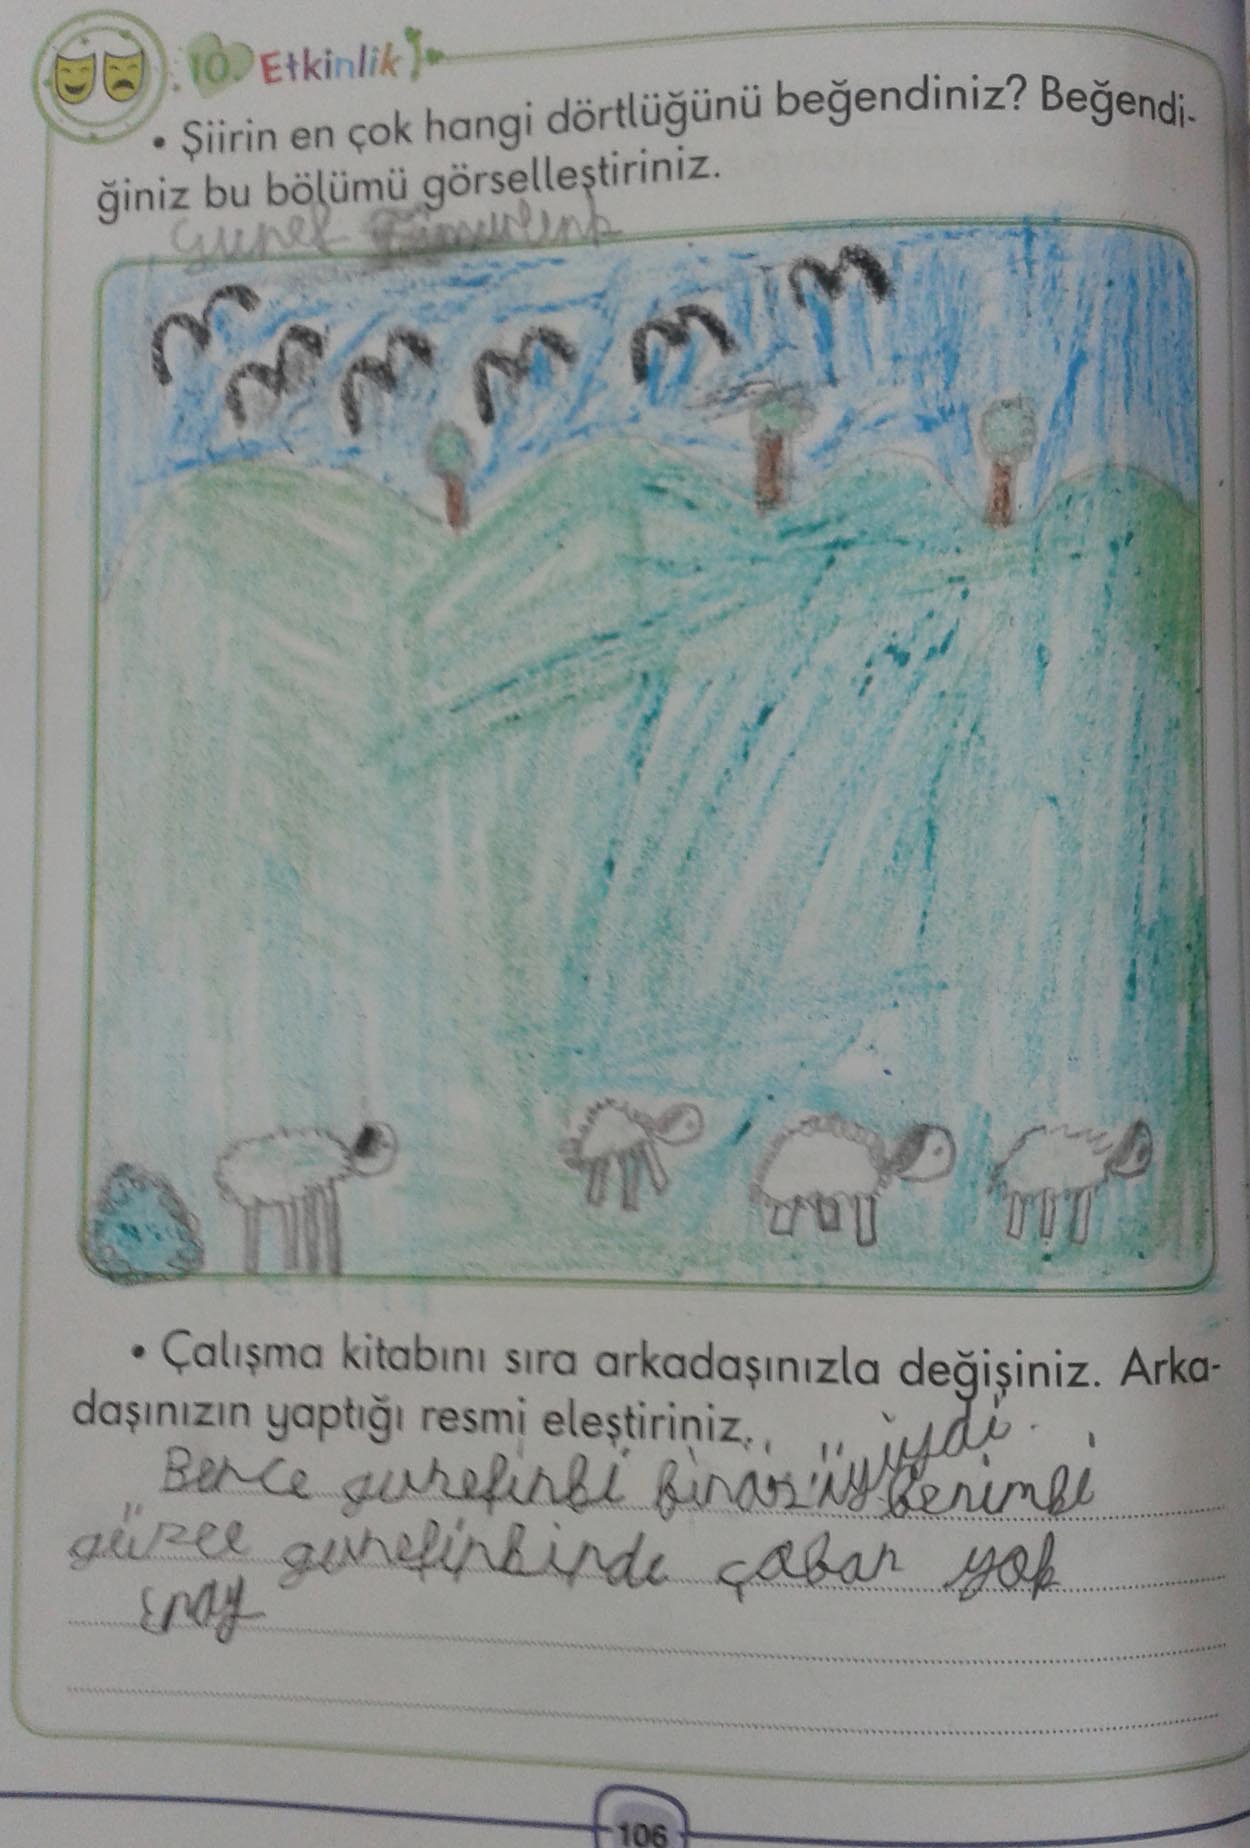 10. Etkinlik
• Şiirin en çok hangi dörtlüğünü beğendiniz? Beğendi-
ğiniz bu bölümü görselleştiriniz.
• Çalışma kitabını sıra arkadaşınızla değişiniz. Arka-
daşınızın yaptığı resmi eleştiriniz.
iydi
Bence guneşinki biraz benimki
güzel guneşinkinde çoban yok
Eray
106